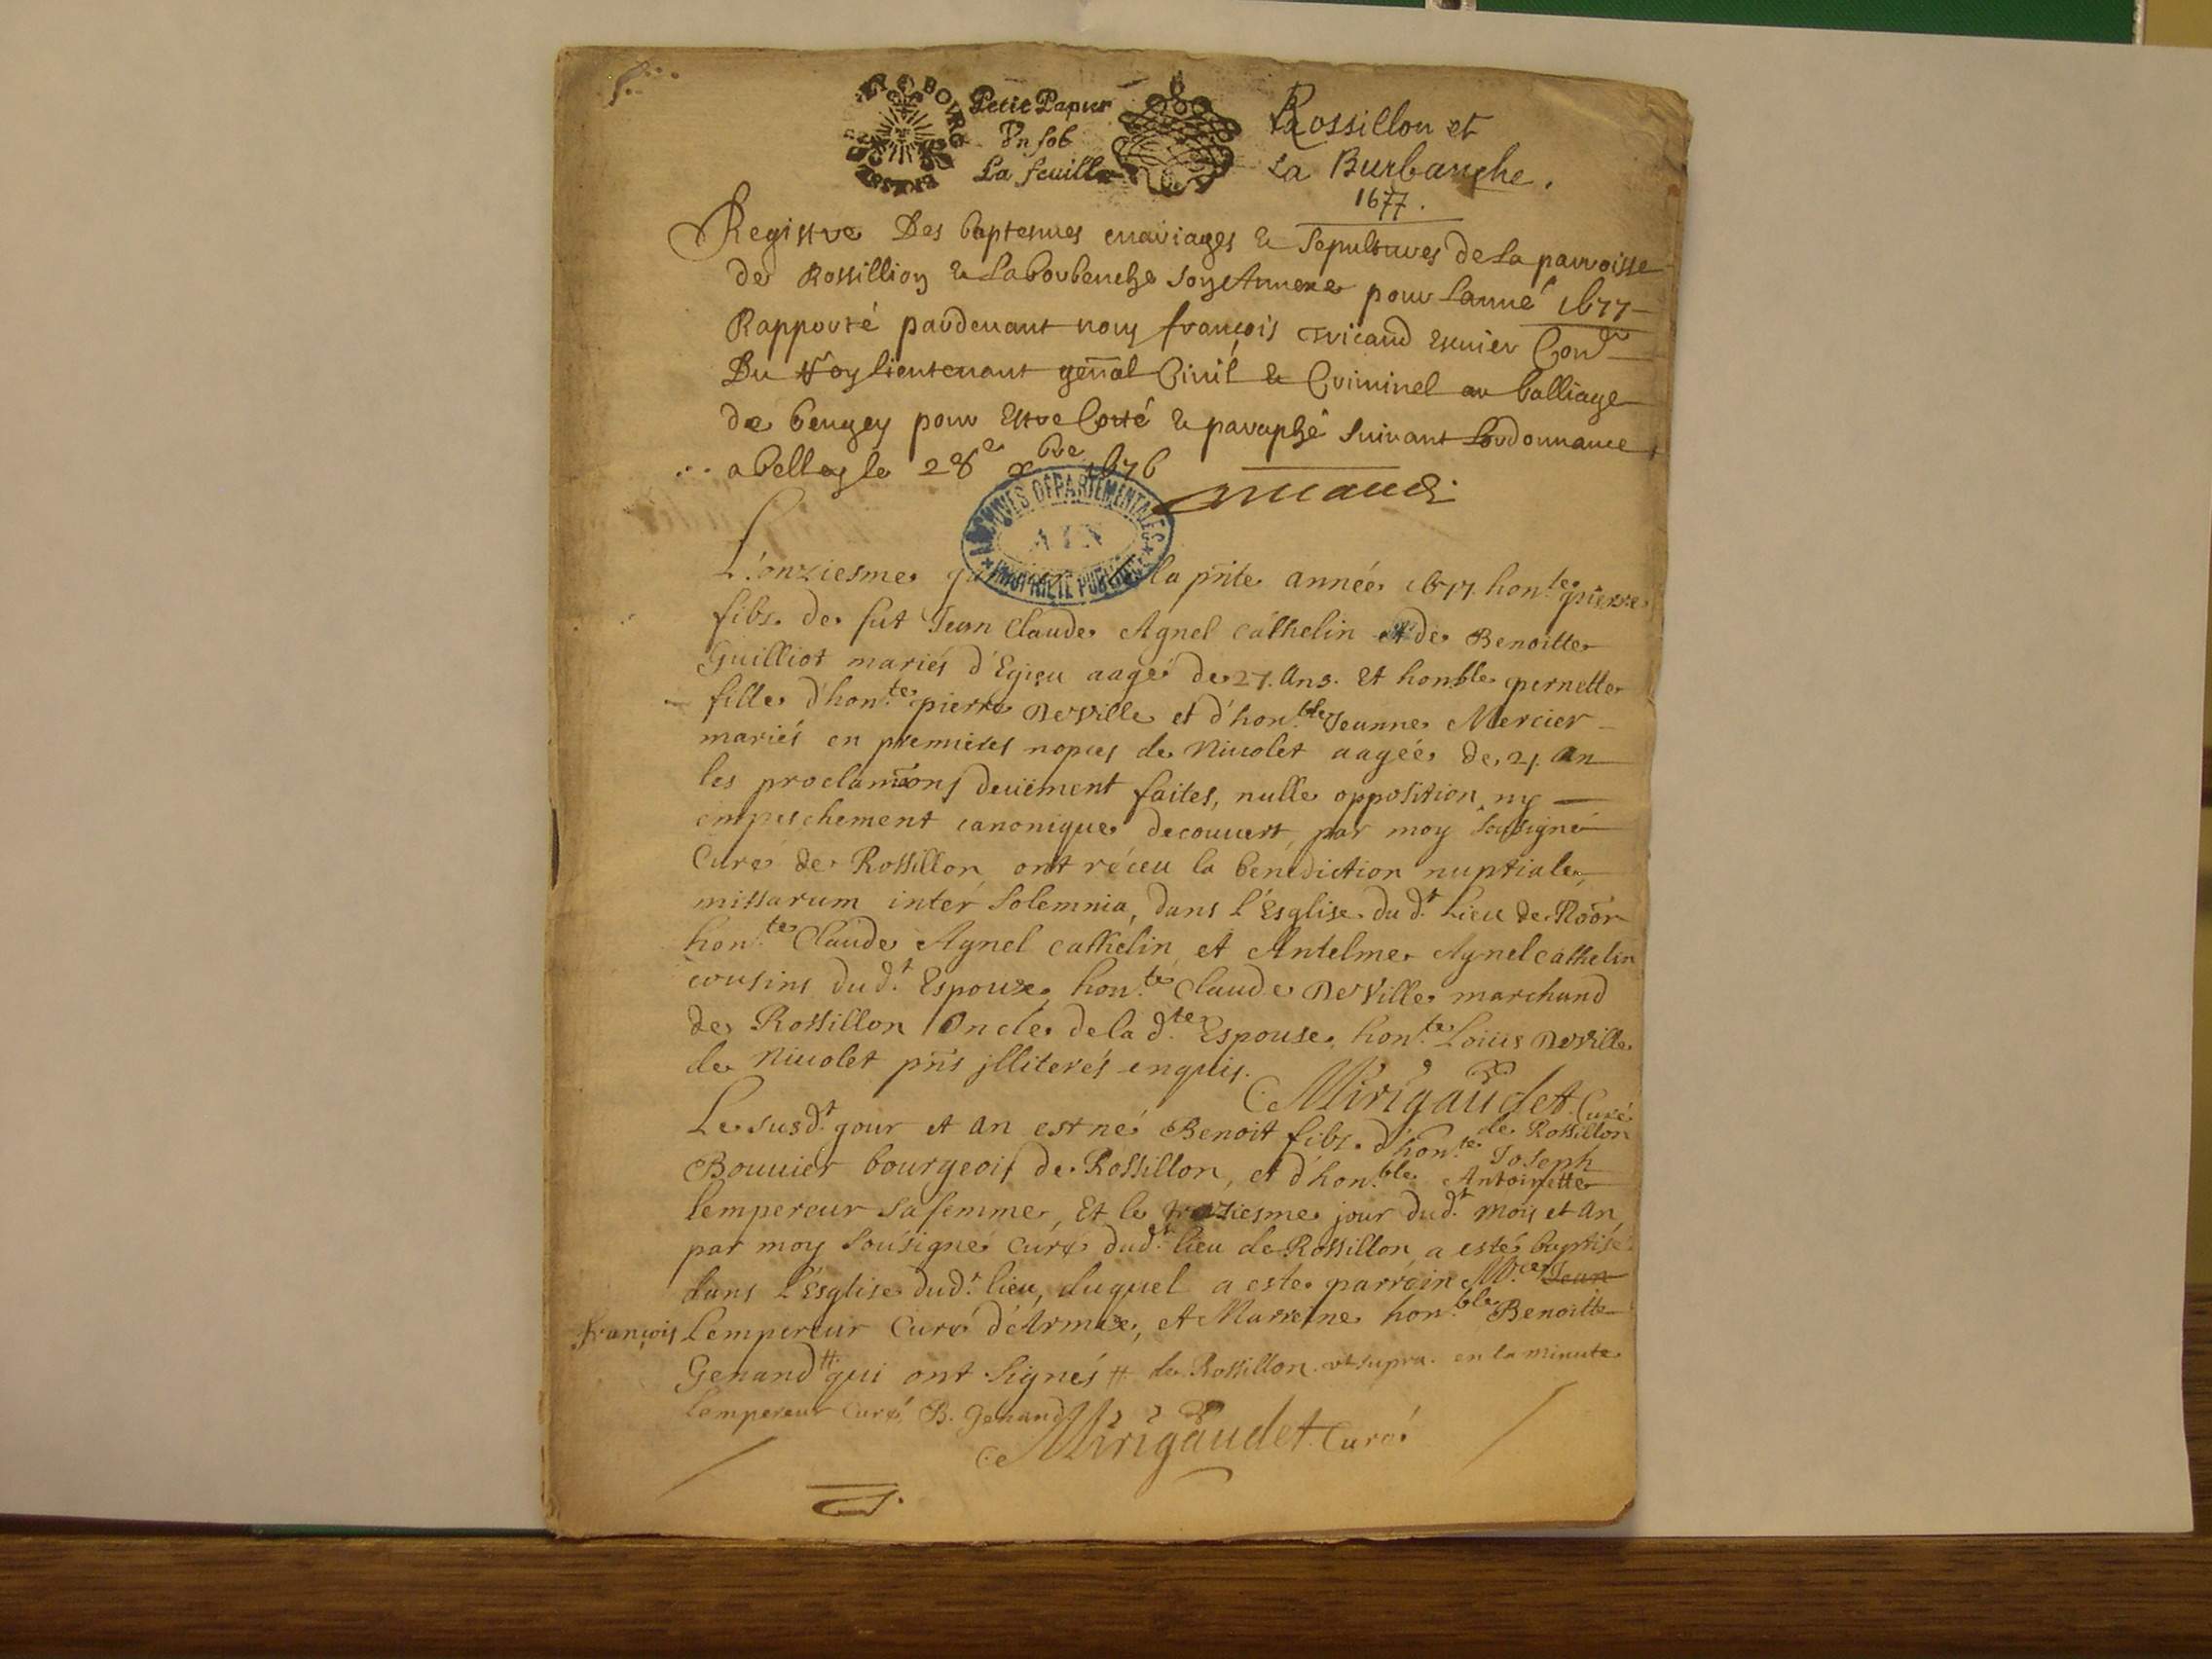 BOVRG
Petit Papier
Vn sol
La feuille
Rossillon et
La Burbanche.
1677.
Registre Des baptesmes mariages & Sepultures de la parroisse
de Rossillion & Labourbenche son Annexe pour Lanné 1677
Rapporté pardeuant nous françois Tricaud Escuier Con.er
Du Roy lieutenant gen̄al Ciuil & Criminel au balliage
de beugey pour Estre Cotté & paraphé Suiuant Lordonnance
a belley le 28e xbre 1676
Tricaud
ARCHIVES DÉPARTEMENTALES
AIN
PROPRIÉTÉ PUBLIQUE
L'onziesme la pn̄te année 1677. hon.te pierre
fils de fut Jean Claude Agnel Cathelin et de Benoitte
Guilliot mariés d'Egieu aagé de 27. Ans. Et honble pernette
fille d'hon.te pierre DeVille et d'hon.ble Jeanne Mercier
mariés en premieres nopces de Niuolet aagée de 21. An
les proclamāons deuëment faites, nulle opposition ny
empeschement canonique decouuert, par moy sousigné
Curé de Rossillon, ont réceu la benediction nuptiale,
missarum inter Solemnia, dans l'Esglise du d.t Lieu de Roōn
hon.te Claude Agnel cathelin, et Antelme Agnel cathelin
cousins dud.t Espoux, hon.te Claude DeVille marchand
de Rossillon Oncle de la d.te Espouse, hon.te Loüis DeVille
de Niuolet pn̄s jlliterés enquis.
Mirigaudet Curé
de Rossillon
Le susd.t jour et an est né Benoit fils d'hon.te Joseph
Bouuier bourgeois de Rossillon, et d'hon.ble Antoinette
lempereur sa femme, Et le traiziesme jour dud.t mois et an,
par moy sousigné Curé dud.t lieu de Rossillon a esté baptisé
dans l'Esglise dud.t lieu, duquel a esté parrein M.re Jean
françois Lempereur Curé d'Armix, et Marreine hon.ble Benoitte
Genand # qui ont signés # de Rossillon. vt supra. en la minute
Lempereur Curé, B. Genand
Mirigaudet Curé